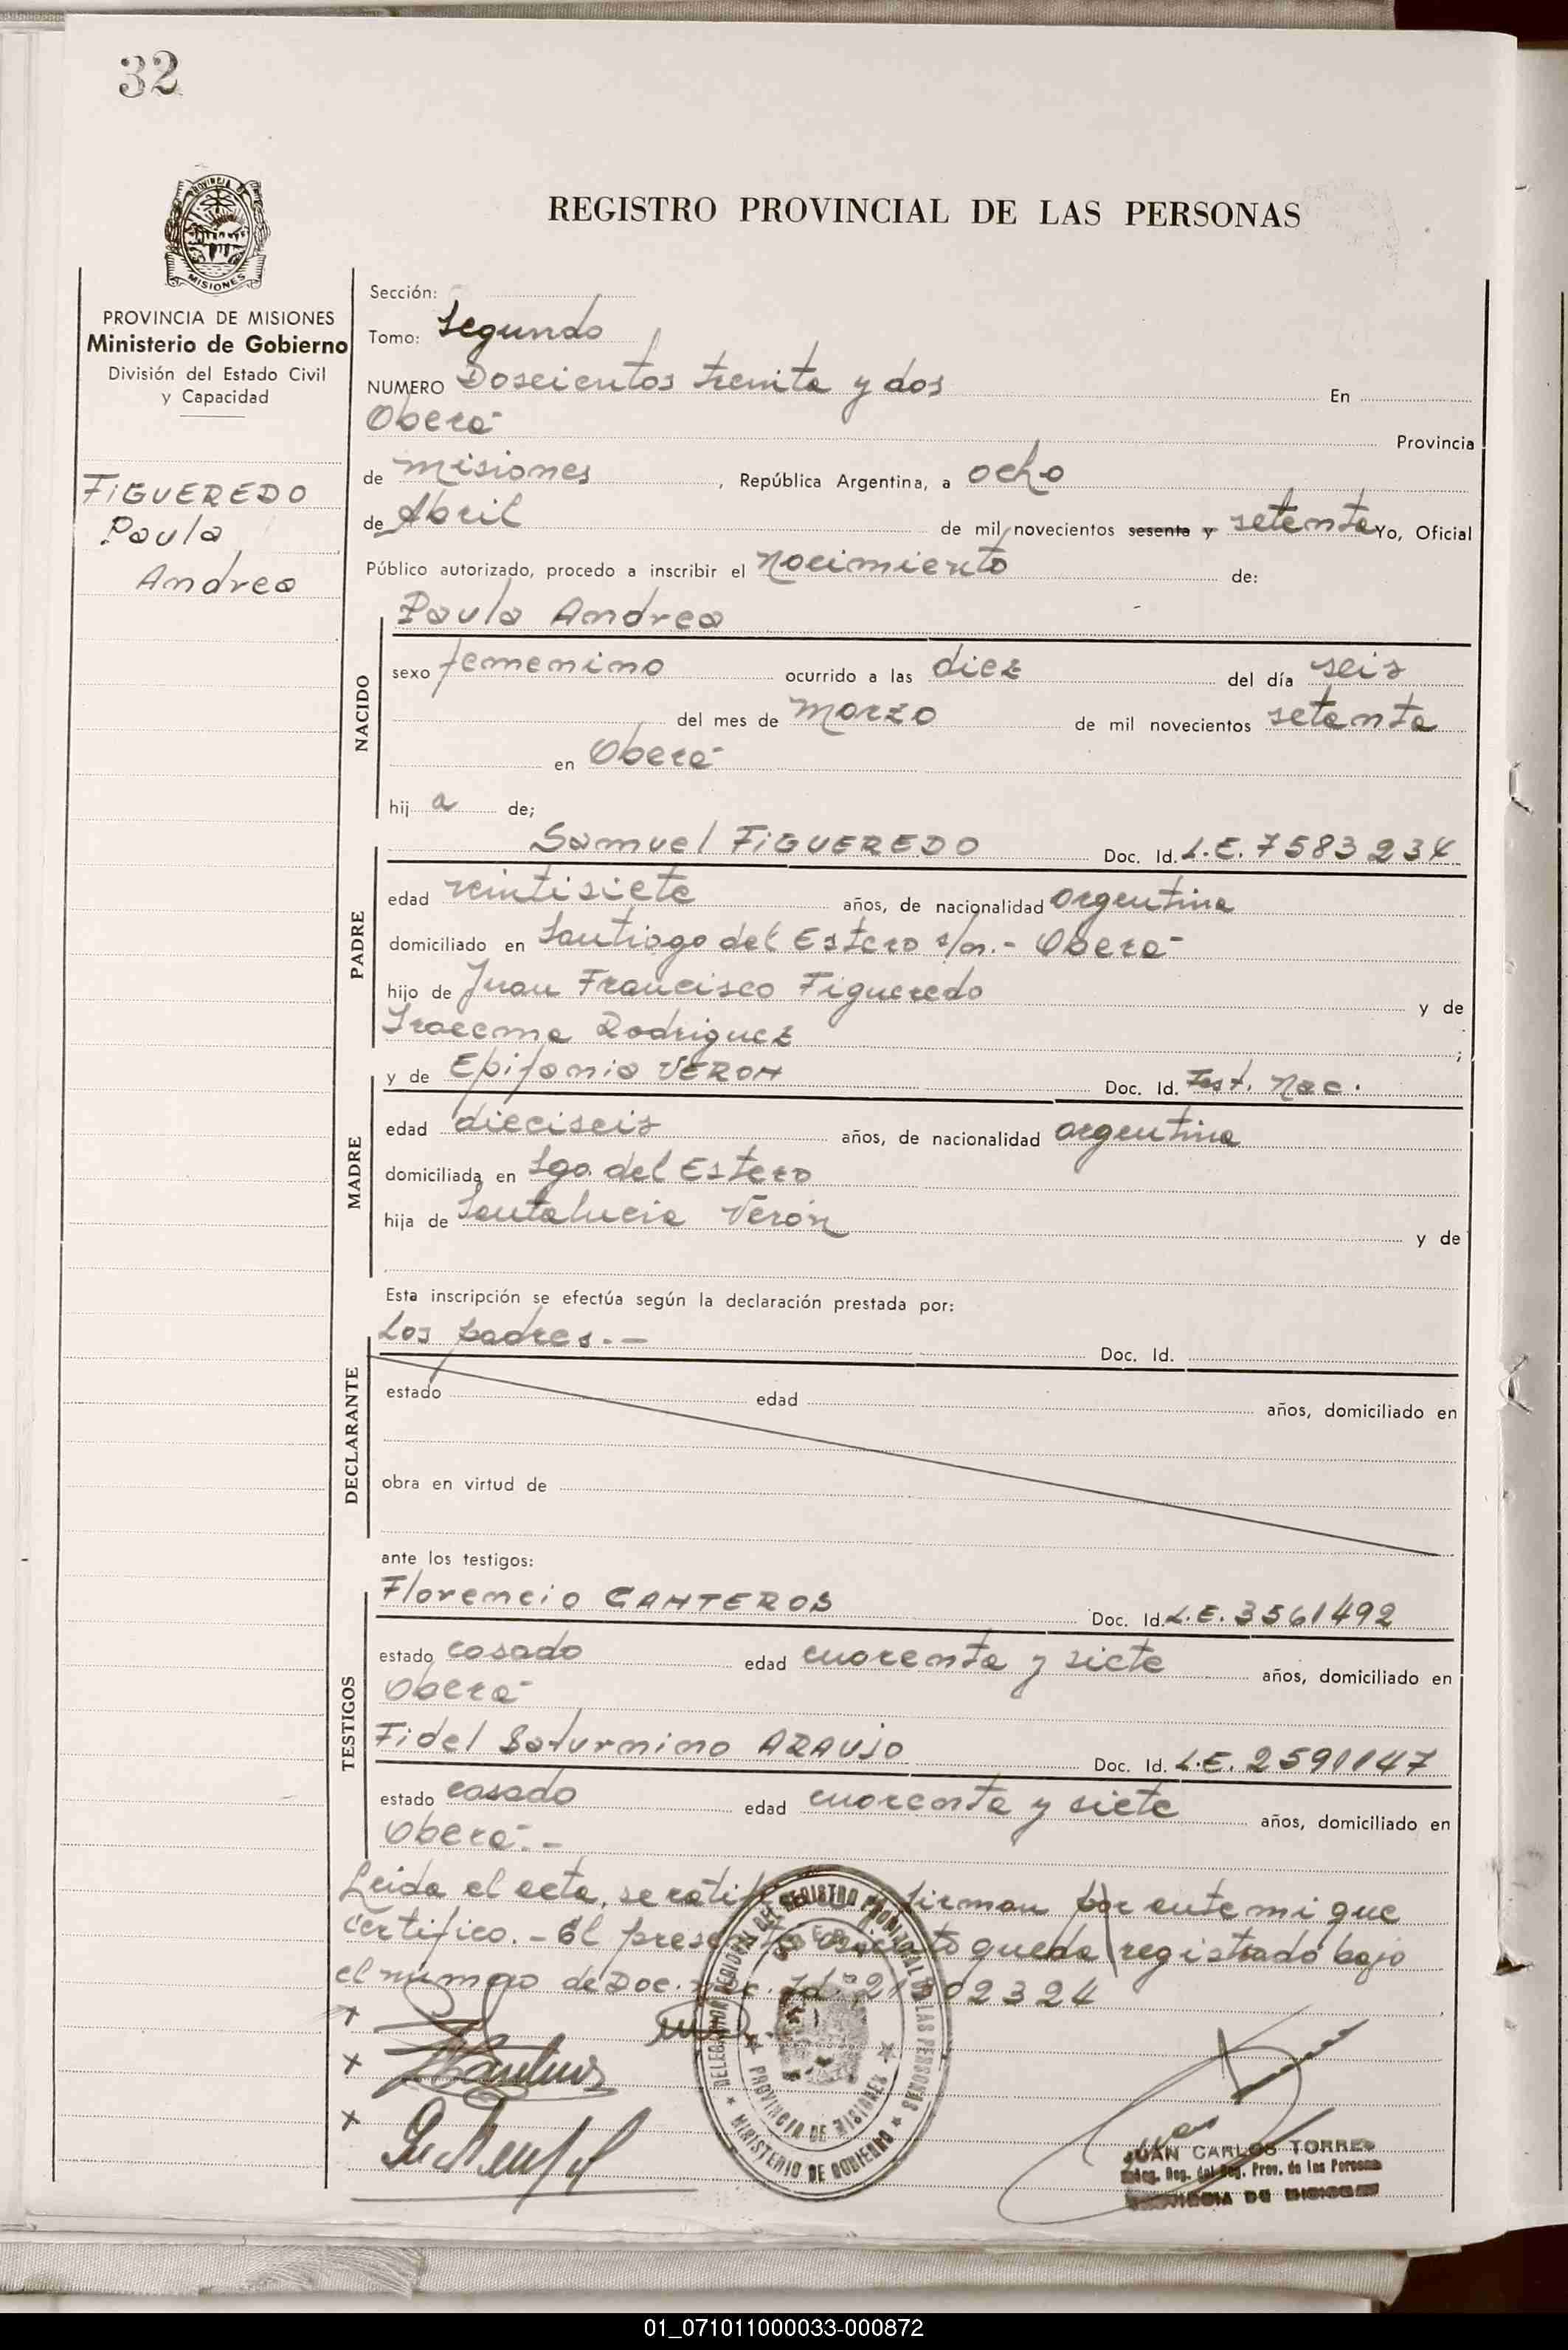 32
REGISTRO PROVINCIAL DE LAS PERSONAS
MISIONES
PROVINCIA DE MISIONES
Ministerio de Gobierno
División del Estado Civil
y Capacidad
FIGUEREDO
Paula
Andrea
Sección:
Tomo: Segundo
NUMERO Doscientos treinta y dos En
Oberá Provincia
de Misiones, República Argentina, a ocho
de Abril de mil novecientos sesenta y setenta Yo, Oficial
Público autorizado, procedo a inscribir el Nacimiento de:
Paula Andrea
NACIDO
sexo femenino ocurrido a las diez del día seis
del mes de Marzo de mil novecientos setenta
en Oberá
hij a de;
Samuel FIGUEREDO Doc. Id. L.E. 7583234
PADRE
edad veintisiete años, de nacionalidad argentina
domiciliado en Santiago del Estero s/n.- Oberá
hijo de Juan Francisco Figueredo y de
Iracema Rodriguez ;
y de Epifania VERON Doc. Id. Test. Nac.
MADRE
edad dieciseis años, de nacionalidad argentina
domiciliada en Sgo. del Estero
hija de Santalucia Verón y de
Esta inscripción se efectúa según la declaración prestada por:
Los padres.-
Doc. Id.
DECLARANTE
estado edad años, domiciliado en
obra en virtud de
ante los testigos:
Florencio CANTEROS Doc. Id. L.E. 3561492
TESTIGOS
estado casado edad cuarenta y siete años, domiciliado en
Oberá
Fidel Saturnino ARAUJO Doc. Id. L.E. 2591147
estado casado edad cuarenta y siete años, domiciliado en
Oberá.-
Leida el acta, se firman por ante mi que
certifico.- El queda registrado bajo
el número de Doc.
DELEGACION REGIONAL DEL REGISTRO PROVINCIAL DE LAS PERSONAS
MINISTERIO DE GOBIERNO
PROVINCIA DE MISIONES
JUAN CARLOS TORRES
Deleg. Reg. del Reg. Prov. de las Personas
PROVINCIA DE MISIONES
01_071011000033-000872